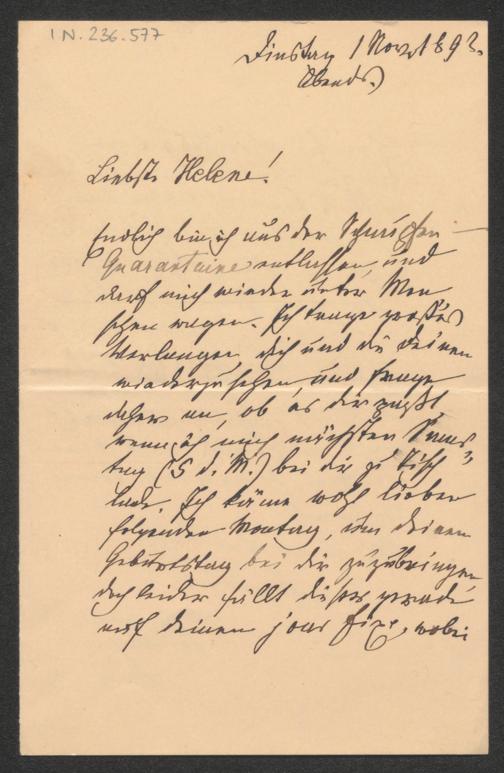 IN. 236.577
Dinstag 1 Nov. 1892.
Abends.)
Liebste Helene!
Endlich bin ich aus der
Quarantaine entlassen und
darf mich wieder unter Men
schen wagen. Ich trage großes
Verlangen, dich und die Deinen
wiederzusehen, und frage
daher an, ob es dir paßt,
wenn ich mich nächsten Sams
tag (5 d. M.) bei dir zu Tisch
lade. Ich käme wohl lieber
folgenden Montag, um deinen
Geburtstag bei dir zuzubringen
doch leider fällt dieser gerade
auf deinen jour fixe, wobei